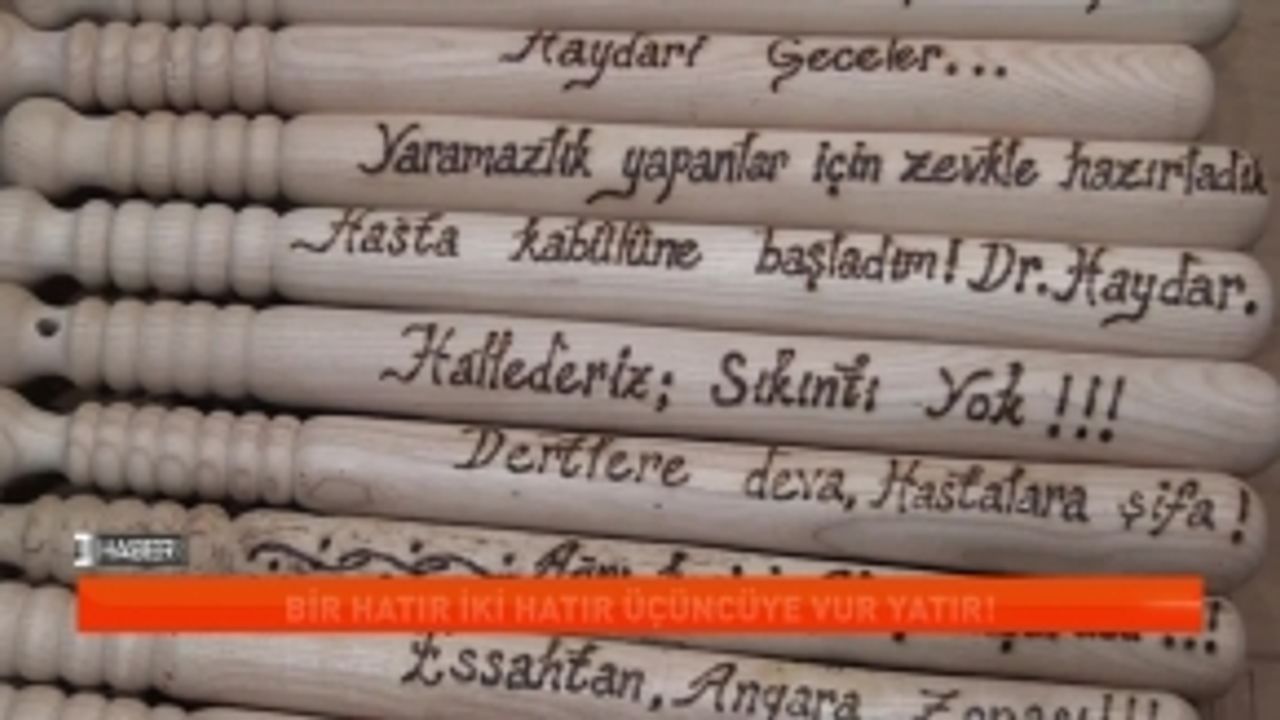 Haydari Geceler...
Yaramazlık yapanlar için zevkle hazırladık
Hasta kabülüne başladım! Dr. Haydar.
Hallederiz; Sıkıntı Yok !!!
Dertlere deva, Hastalara şifa !
HABER
BİR HATIR İKİ HATIR ÜÇÜNCÜYE VUR YATIR!
Essahtan, Angara Zopası!!!